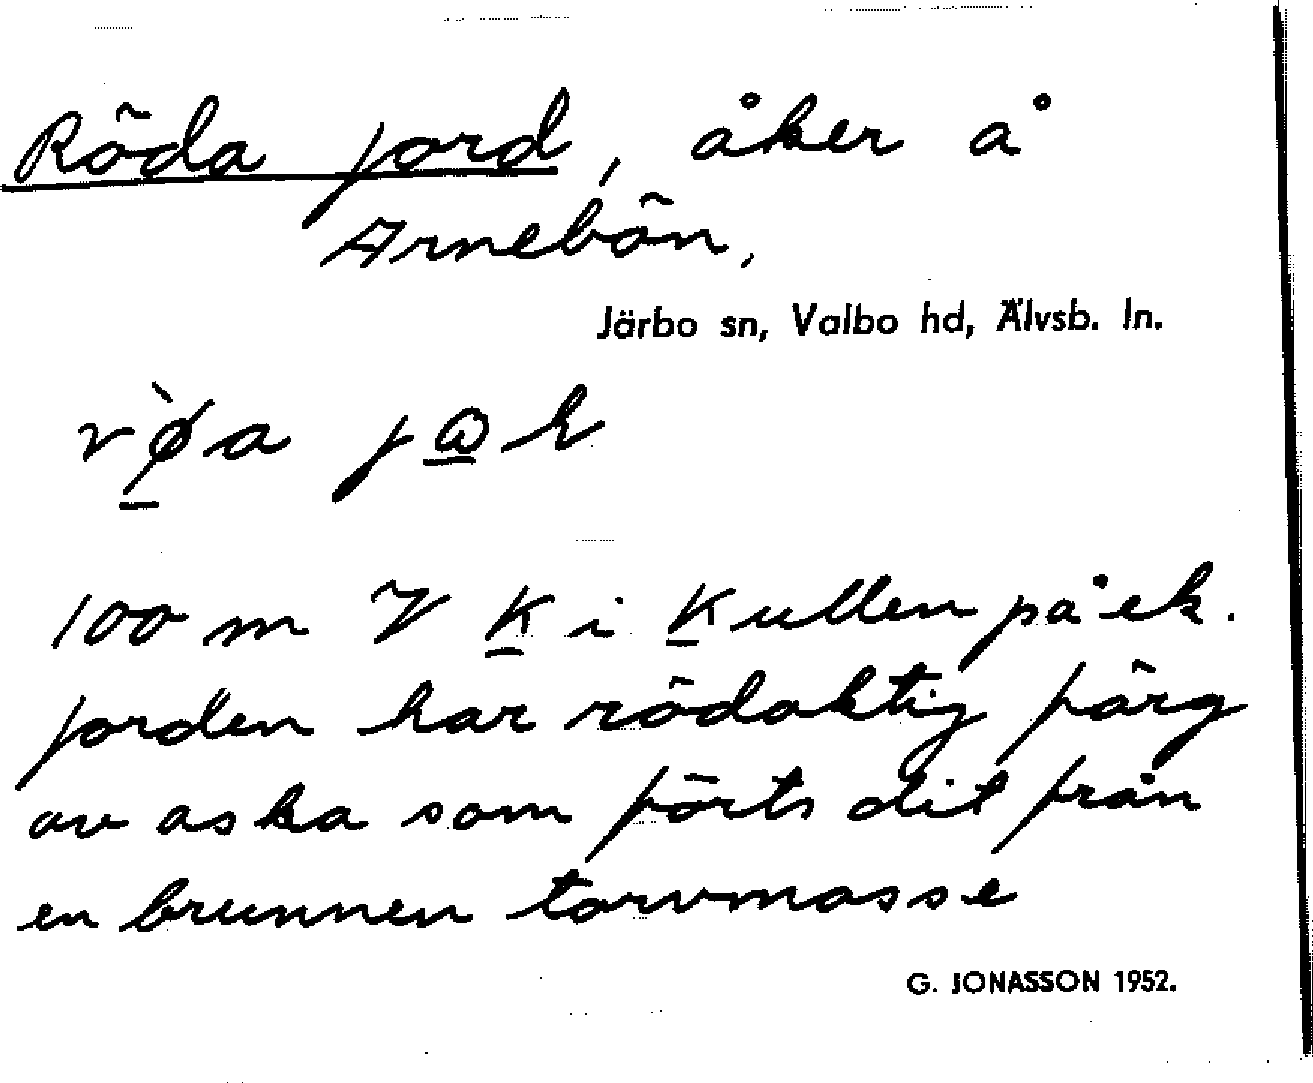 Röda jord, åker å
Arnebön,
Järbo sn, Valbo hd, Älvsb. ln.
100 m V K i Kullen på ek.
jorden har rödaktig färg
av aska som förts dit från
en brunnen torvmosse
G. JONASSON 1952.